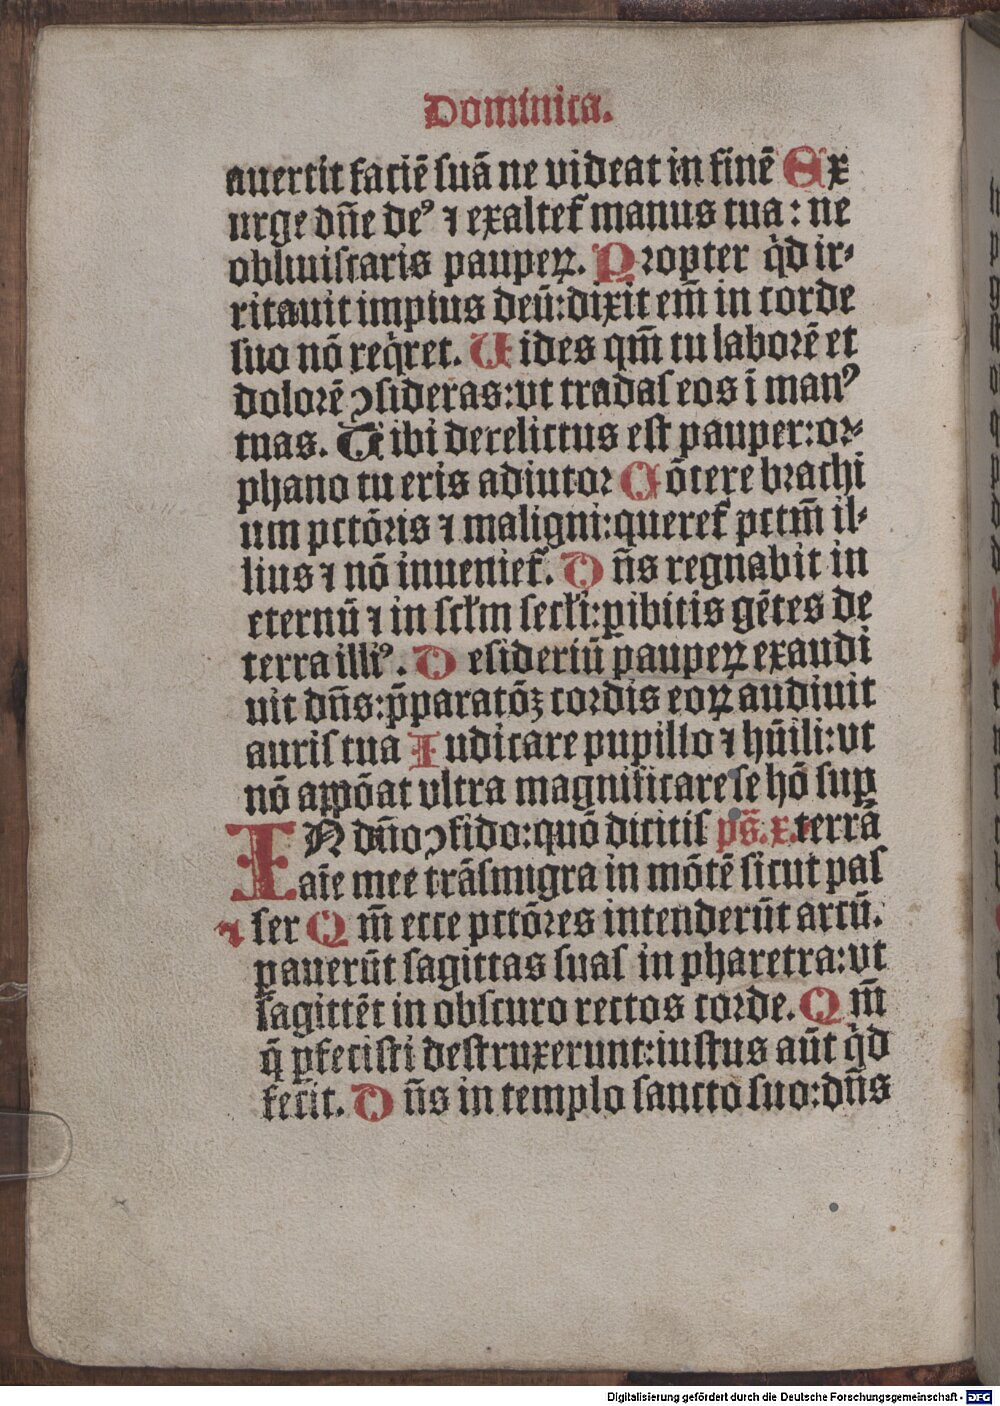 Dominica.
auertit faciē suā ne videat in finē Ex
urge dn̄e deꝰ ⁊ exaltet᷑ manus tua: ne
obliuiscaris pauperꝝ. Propter qd̓ ir⸗
ritauit impius deū: dixit em̄ in corde
suo nō reqret. Uides qm̄ tu laborē et
dolorē ꝯsideras: vt tradas eos ī manꝰ
tuas. Tibi derelictus est pauper: or⸗
phano tu eris adiutor Cōtere brachi
um pctōris ⁊ maligni: queret᷑ pctm̄ il⸗
lius ⁊ nō inueniet᷑. Dn̄s regnabit in
eternū ⁊ in scłm secłi: ꝑibitis gētes de
terra illiꝰ. Desideriū pauperꝝ exaudi
uit dn̄s: p̄paratōꝫ cordis eorꝝ audiuit
auris tua Iudicare pupillo ⁊ hūili: vt
nō appōat vltra magnificare se hō suꝑ
IN dn̄o ꝯfido: quō dicitis ps̄. x. terrā
aīe mee trāsmigra in mōtē sicut pas
⁊ ser Qm̄ ecce pctōres intenderūt arcū.
ꝑauerūt sagittas suas in pharetra: vt
sagittēt in obscuro rectos corde. Qm̄
q̄ ꝑfecisti destruxerunt: iustus aūt qd̓
fecit. Dn̄s in templo sancto suo: dn̄s
Digitalisierung gefördert durch die Deutsche Forschungsgemeinschaft - DFG